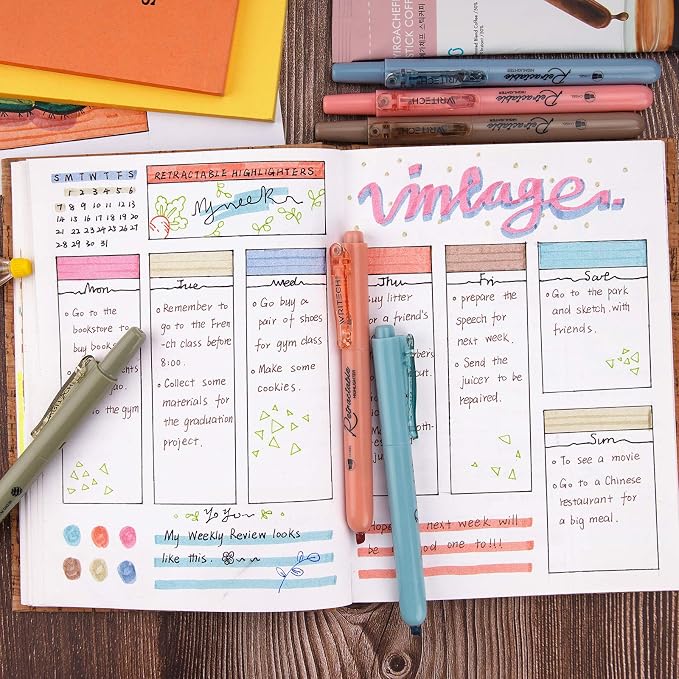 STICK COFF
WRITECH Retractable HIGHLIGHTER CHISEL
WRITECH Retractable HIGHLIGHTER CHISEL
WRITECH Retractable HIGHLIGHTER CHISEL
S M T W T F S
1 2 3 4 5 6
7 8 9 10 11 12 13
14 15 16 17 18 19 20
21 22 23 24 25 26 27
28 29 30 31
RETRACTABLE HIGHLIGHTERS
My week
vintage
Mon
Go to the
bookstore to
buy books
to the gym
Tue
Remember to
go to the Fren
-ch class before
8:00.
Collect some
materials for
the graduation
project.
Wed
Go buy a
pair of shoes
for gym class
Make some
cookies.
Thu
Buy litter
for a friend's
Fri
prepare the
speech for
next week.
Send the
juicer to be
repaired.
Sat
Go to the park
and sketch with
friends.
Sun
To see a movie
Go to a Chinese
restaurant for
a big meal.
WRITECH Retractable HIGHLIGHTER
My Weekly Review looks
like this.
Hope next week will
be good one to!!!